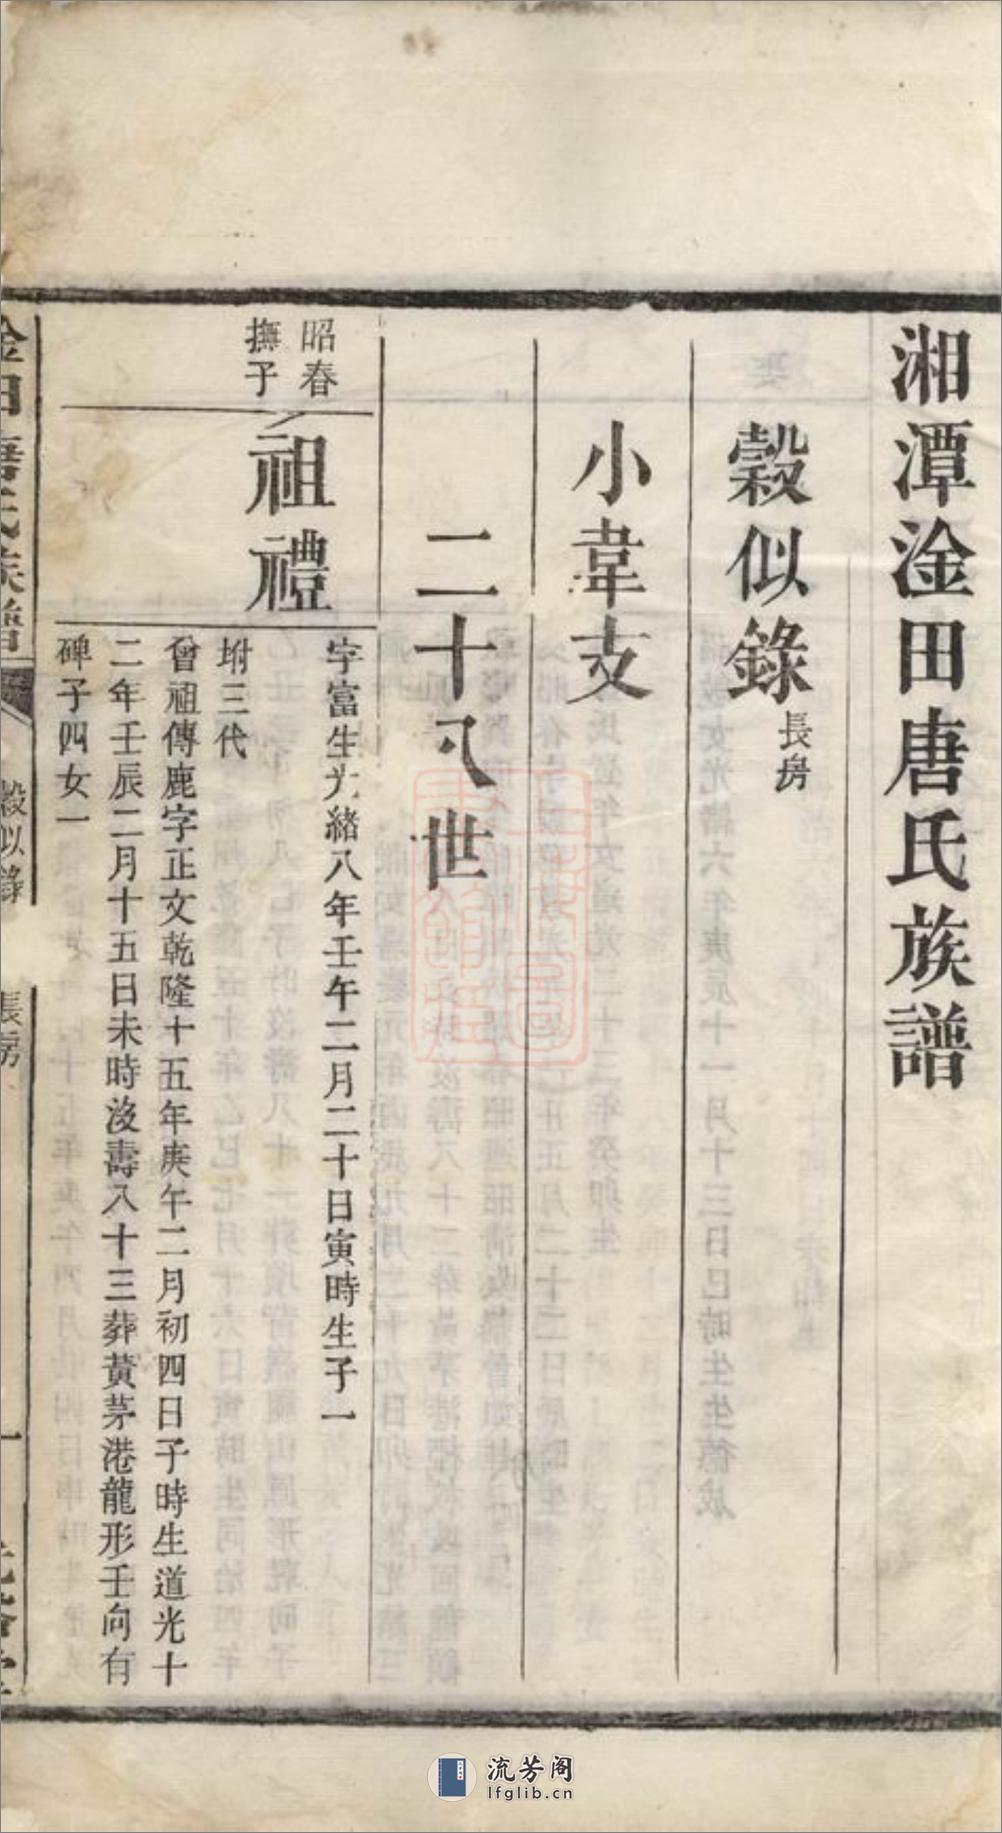 湘潭淦田唐氏族譜
穀似錄長房
小韋支
二十八世
昭春
撫子
祖禮
字富生光緒八年壬午二月二十日寅時生子一
坿三代
曾祖傳鹿字正文乾隆十五年庚午二月初四日子時生道光十
二年壬辰二月十五日未時沒壽八十三葬黃茅港龍形壬向有
碑子四女一
金田唐氏族譜
穀似錄
長房
一
流芳阁
lfglib.cn